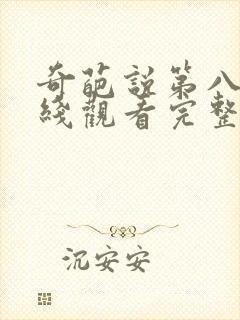 奇葩説第八
綫觀看完整
沉安安